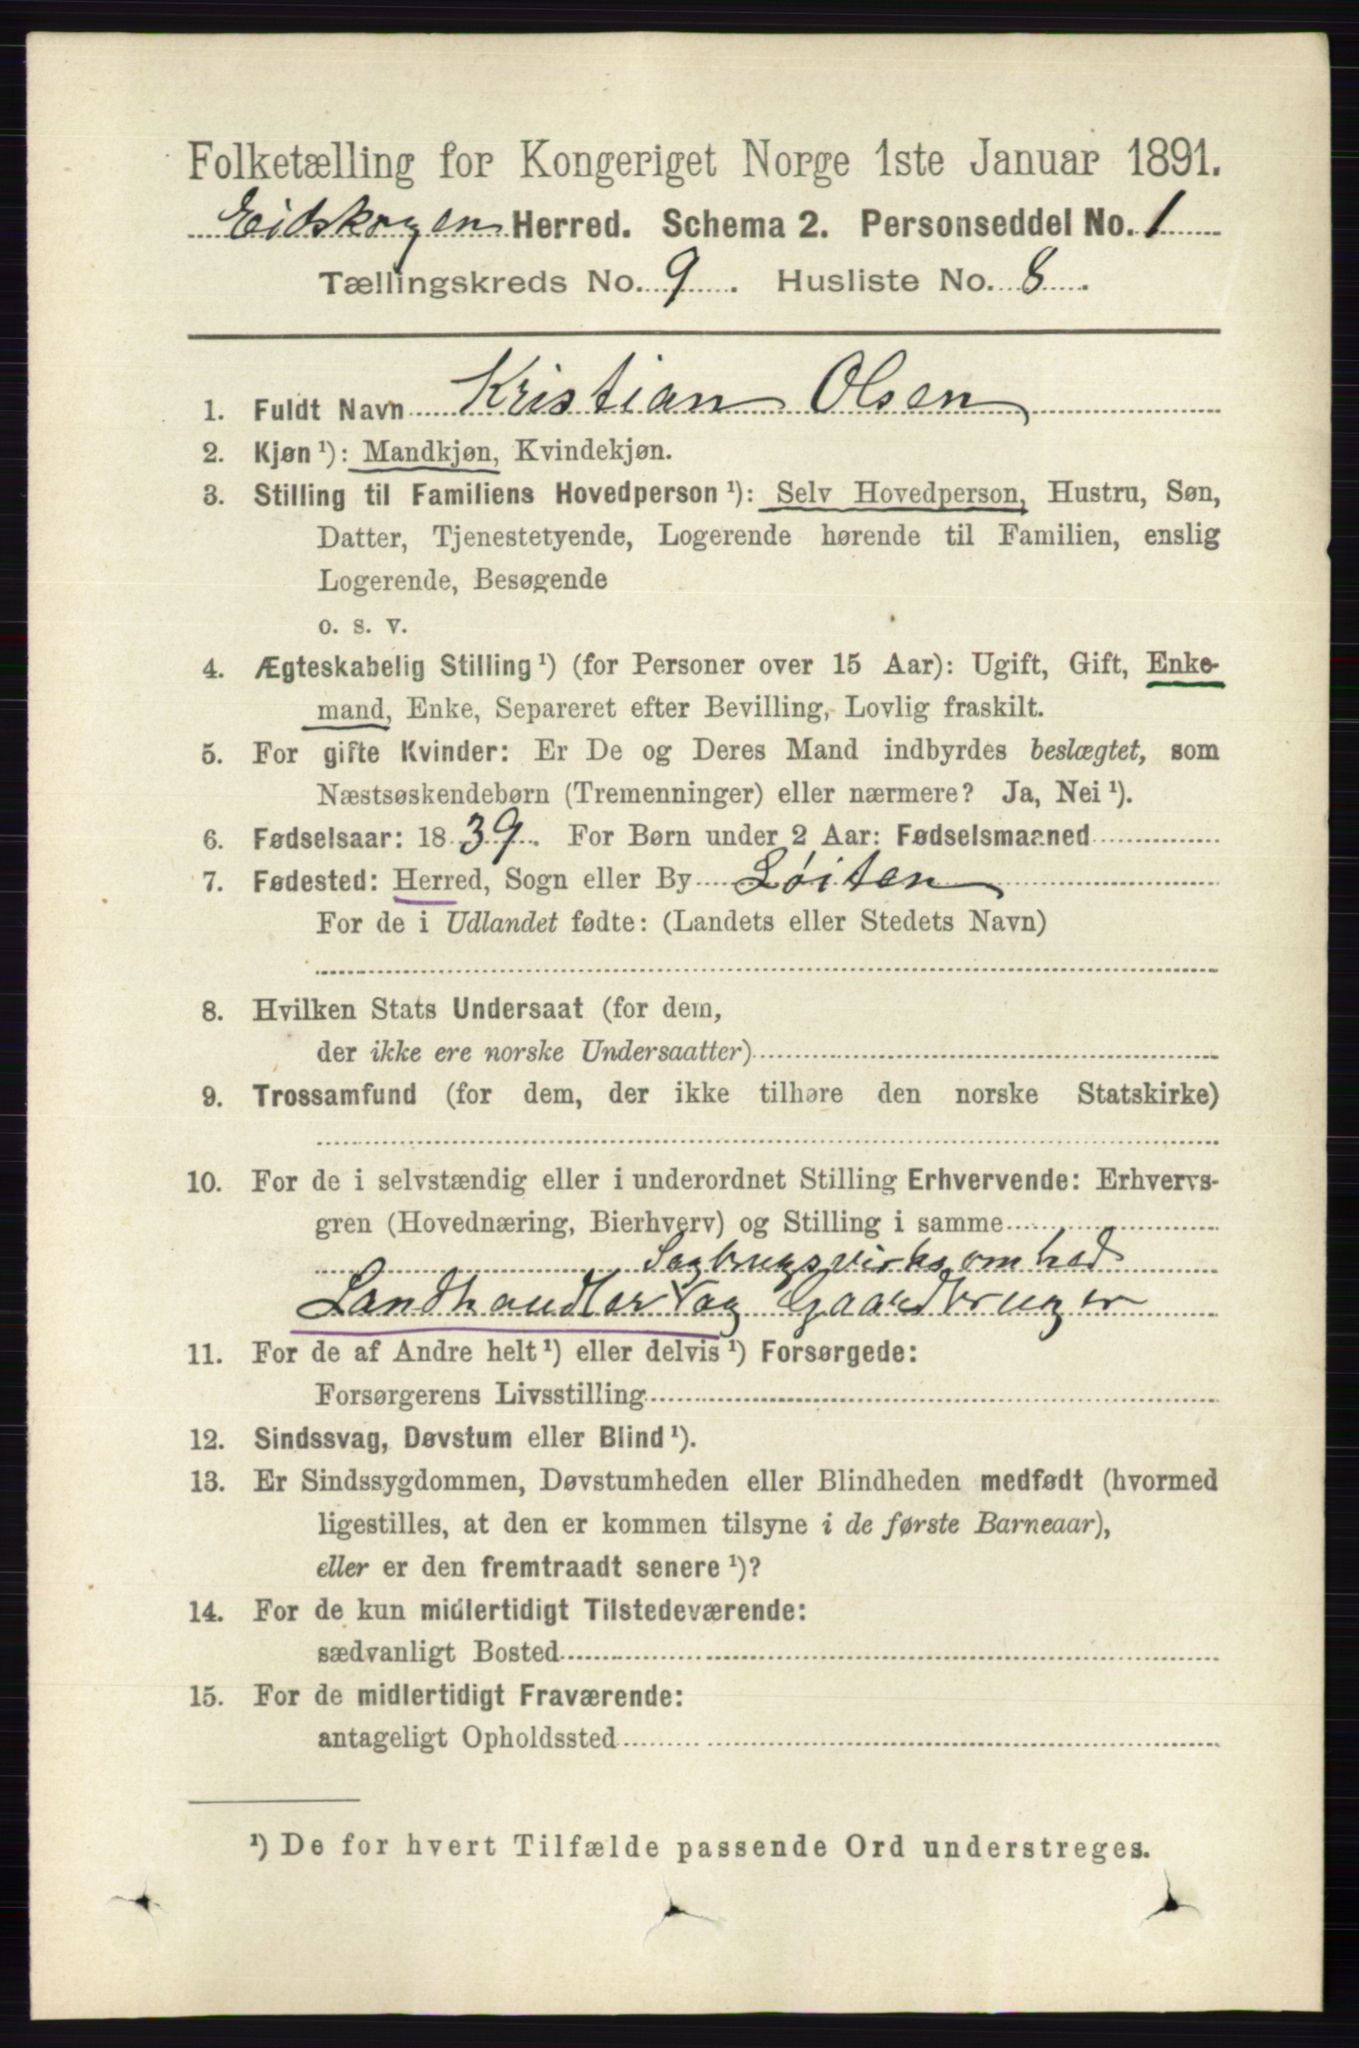 Folketælling for Kongeriget Norge 1ste Januar 1891.
Eidskogen Herred. Schema 2. Personseddel No. 1
Tællingskreds No. 9. Husliste No. 8.
1. Fuldt Navn Kristian Olsen
2. Kjøn ¹): Mandkjøn, Kvindekjøn.
3. Stilling til Familiens Hovedperson ¹): Selv Hovedperson, Hustru, Søn,
Datter, Tjenestetyende, Logerende hørende til Familien, enslig
Logerende, Besøgende
o. s. v.
4. Ægteskabelig Stilling ¹) (for Personer over 15 Aar): Ugift, Gift, Enke-
mand, Enke, Separeret efter Bevilling, Lovlig fraskilt.
5. For gifte Kvinder: Er De og Deres Mand indbyrdes beslægtet, som
Næstsøskendebørn (Tremenninger) eller nærmere? Ja, Nei ¹).
6. Fødselsaar: 1839. For Børn under 2 Aar: Fødselsmaaned
7. Fødested: Herred, Sogn eller By Løiten
For de i Udlandet fødte: (Landets eller Stedets Navn)
8. Hvilken Stats Undersaat (for dem,
der ikke ere norske Undersaatter)
9. Trossamfund (for dem, der ikke tilhøre den norske Statskirke)
10. For de i selvstændig eller i underordnet Stilling Erhvervende: Erhvervs-
gren (Hovednæring, Bierhverv) og Stilling i samme
Sagbrugsvirksomhed
Landhandler og Gaardbruger
11. For de af Andre helt ¹) eller delvis ¹) Forsørgede:
Forsørgerens Livsstilling
12. Sindssvag, Døvstum eller Blind ¹).
13. Er Sindssygdommen, Døvstumheden eller Blindheden medfødt (hvormed
ligestilles, at den er kommen tilsyne i de første Barneaar),
eller er den fremtraadt senere ¹)?
14. For de kun midlertidigt Tilstedeværende:
sædvanligt Bosted
15. For de midlertidigt Fraværende:
antageligt Opholdssted
¹) De for hvert Tilfælde passende Ord understreges.